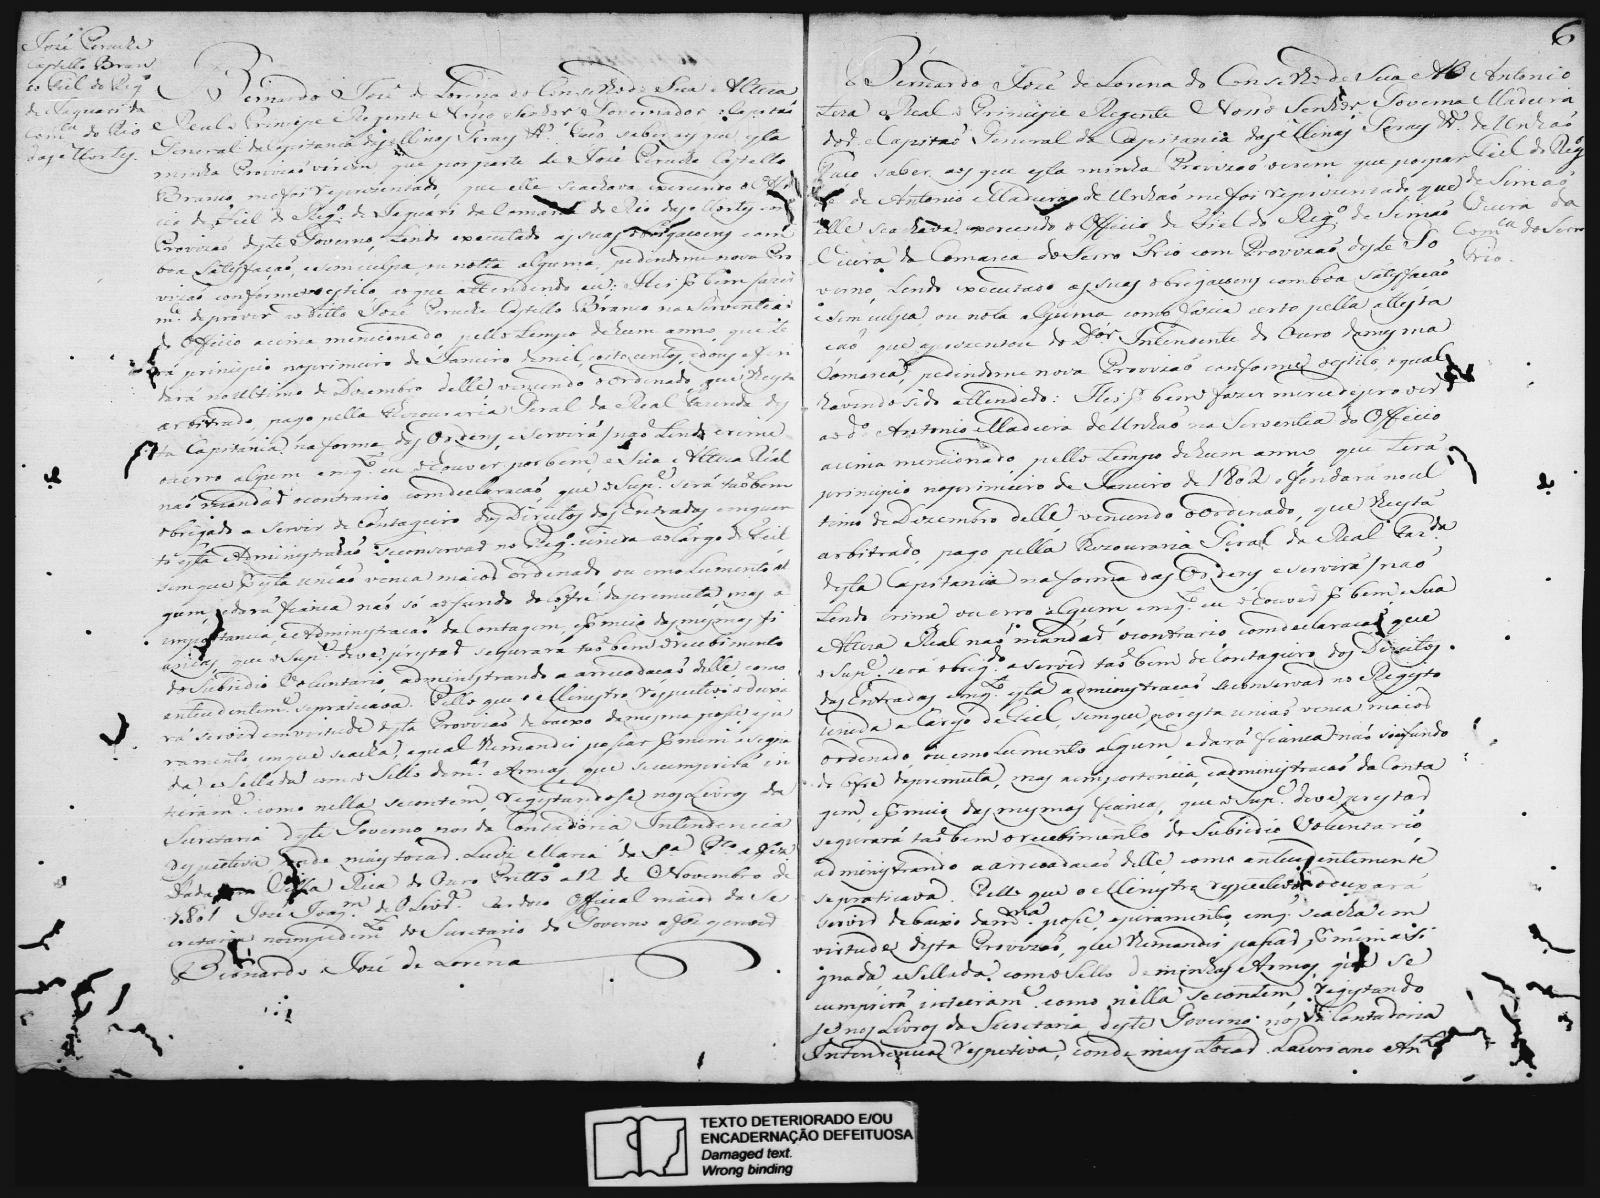 José Peruche
Castello Bran
co Fiel do Reg.º
de Jaguari da
Com.ca do Rio
das Mortes.
Bernardo José de Lorena do Conselho de Sua Alteza
Real o Principe Regente Nosso Senhor e Governador e Capitaõ
General da Capitania das Minas Geraes &.ª Faço saber aos que esta
minha Provizaõ virem que por parte de José Peruche Castello
Branco me foi reprezentado, que elle se achava exercendo o Offi
cio de Fiel do Reg.º de Jaguari da Comarca do Rio das Mortes com
Provizaõ deste Governo, tendo executado as suas obrigaçoens com
boa satisfaçaõ, e sem culpa, ou nota alguma, pedindome nova Pro
vizaõ conforme o estilo, ao que attendendo eu: Hei p.r bem fazer
m.ce de prover ao ditto José Peruche Castello Branco na Serventia
do Officio acima mencionado pello tempo de hum anno, que te
rá principio no primeiro de Janeiro de mil, oito centos, e dous e fin
dará no ultimo de Dezembro delle vencendo o ordenado, que lhe esta
arbitrado, pago pella Thezouraria Geral da Real Fazenda des
ta Capitania na forma das Ordens, e servirá naõ tendo crime
ou erro algum emq.to eu o houver por bem, e Sua Alteza Real
naõ mandar o contrario com declaraçaõ que o Sup.e será taõbem
obrigado a servir de Contageiro dos Direitos das Entradas emquan
to esta Administraçaõ se conservar no Reg.º unida ao Cargo de Fiel
sem que p.r esta uniaõ vença maior ordenado, ou emolumento al
gum, e dará fiança naõ só ao fundo do cofre da premuta, mas a
importancia, e Administraçaõ da Contagem, e p.r meio das mesmas fi
anças, que o Sup.e deve prestar segurará taõbem o recebimento
do Subsidio Voluntario, administrando a arrecadaçaõ delle, como
antecedentem.te se praticava. Pello que o Ministro respectivo o deixa
rá servir em virtude desta Provizaõ debaixo da mesma posse, e ju
ramento, em que se acha, a qual lhe mandei passar p.r mim assigna
da e Sellada com o Sello de m.as Armas, que se cumprirá in
teiram.te como nella se contem, registandose nos Livros da
Secretaria deste Governo, nos da Contadoria Intendencia
respectiva, e onde mais tocar. Luiz Maria da S.a P.to a fez
Dada em Villa Rica do Ouro Preto a 12 de Novembro de
1801 José Joaq.m de Oliv.ra Cardoso Official maior da Se
cretaria no impedim.to do Secretario do Governo a fiz escrever
Bernardo José de Lorena
6
Bernardo José de Lorena do Conselho de Sua Al
teza Real o Principe Regente Nosso Senhor Governa
dor e Capitaõ General da Capitania das Minas Geraes &.ª
Faço saber aos que esta minha Provizaõ virem que por par
te de Antonio Madeira de Unhaõ me foi reprezentado que
elle se achava exercendo o Officio de Fiel do Reg.º de Simaõ
Vieira da Comarca do Serro Frio com Provizaõ deste Go
verno, tendo executado as suas obrigaçoens com boa satisfaçaõ
e sem culpa, ou nota alguma como fazia certo pella attesta
çaõ que aprezentou do D.or Intendente do Ouro da mesma
Comarca, pedindome nova Provizaõ conforme o estilo, o qual
havendo sido attendido: Hei p.r bem fazer merce de prover
ao d.º Antonio Madeira de Unhaõ na Serventia do Officio
acima mencionado pello tempo de hum anno que terá
principio no primeiro de Janeiro de 1802 e findará no ul
timo de Dezembro delle vencendo o Ordenado, que lhe esta
arbitrado, pago pella Thezouraria Geral da Real Faz.da
desta Capitania na forma das Ordens e servirá naõ
tendo crime ou erro algum emq.to eu o houver p.r bem, e Sua
Alteza Real naõ mandar o contrario, com declaraçaõ que
o Sup.e será obrig.do a servir taõbem de Contageiro dos Direitos
das Entradas emq.to esta administraçaõ se conservar no Registo
unida ao Cargo de Fiel, sem que por esta uniaõ vença maior
ordenado, ou emolumento algum, e dará fiança naõ só ao fundo
do Cofre da premuta, mas a importancia, e administraçaõ da Conta
gem e p.r meio das mesmas fianças, que o Sup.e deve prestar
segurará taõbem o recebimento do Subsidio Voluntario
administrando a arrecadaçaõ delle como antecedentemente
se praticava. Pello que o Ministro respectivo o deixará
servir debaixo da m.ma posse, e juramento, em q. se acha em
virtude desta Provizaõ, que lhe mandei passar p.r mim assi
gnada, e Sellada com o Sello de minhas Armas, que se
cumprirá inteiram.te como nella se contem, registando
se nos Livros da Secretaria deste Governo nos da Contadoria
Intendencia respectiva, e onde mais tocar. Lauriano An.to
Antonio
Madeira
de Unhaõ
Fiel do Reg.º
de Simaõ
Vieira da
Com.ca do Serro
Frio.
TEXTO DETERIORADO E/OU
ENCADERNAÇÃO DEFEITUOSA
Damaged text.
Wrong binding